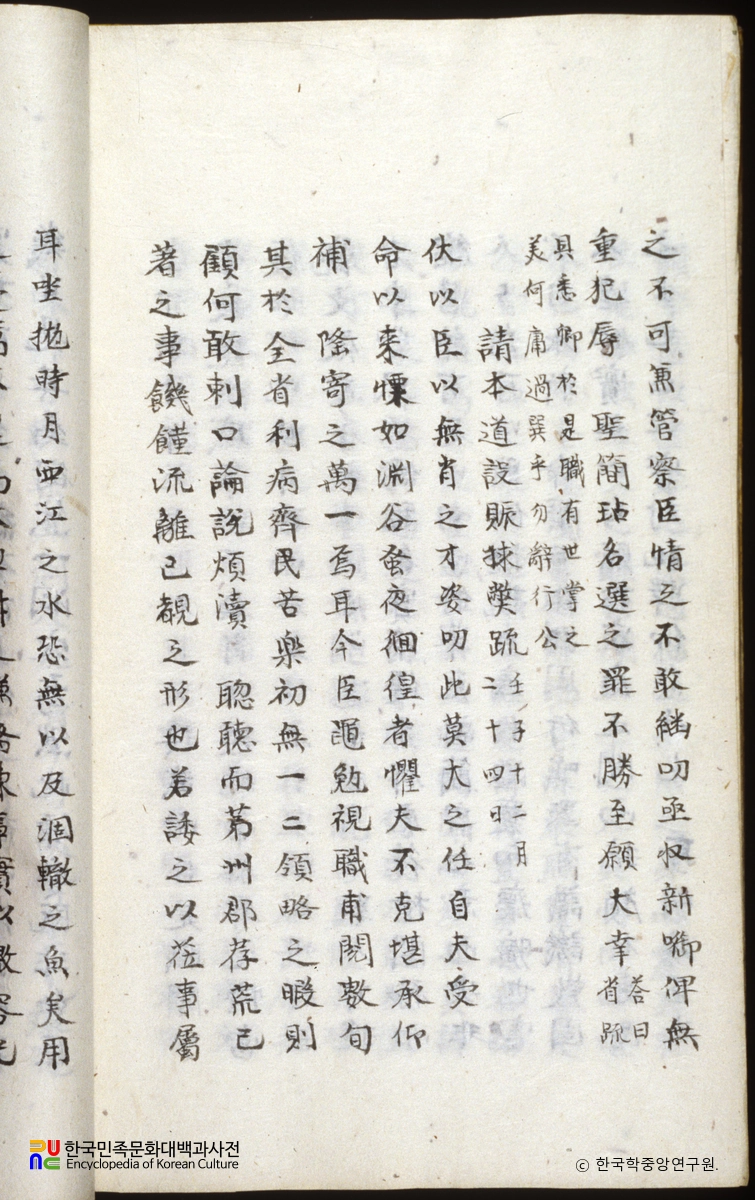 之不可兼管察臣情之不敢繼叨亟収新啣俾無
重犯辱聖簡玷名選之罪不勝至願大幸答曰省䟽
具悉卿於是職有世掌之
美何庸過巽乎勿辭行公
請本道設賑捄獘䟽壬子十二月二十四日
伏以臣以無肖之才姿叨此莫大之任自夫受
命以来慄如淵谷蚤夜徊徨者懼夫不克堪承仰
補隆寄之萬一焉耳今臣黽勉視職甫閱數旬
其於全省利病齊民苦樂初無一二領略之暇則
顧何敢刺口論說煩瀆聦聽而苐州郡荐荒已
著之事饑饉流離已覩之形也若諉之以莅事屬
耳坐拋時月西江之水恐無以及涸轍之魚矣用
한국민족문화대백과사전
Encyclopedia of Korean Culture
ⓒ 한국학중앙연구원.